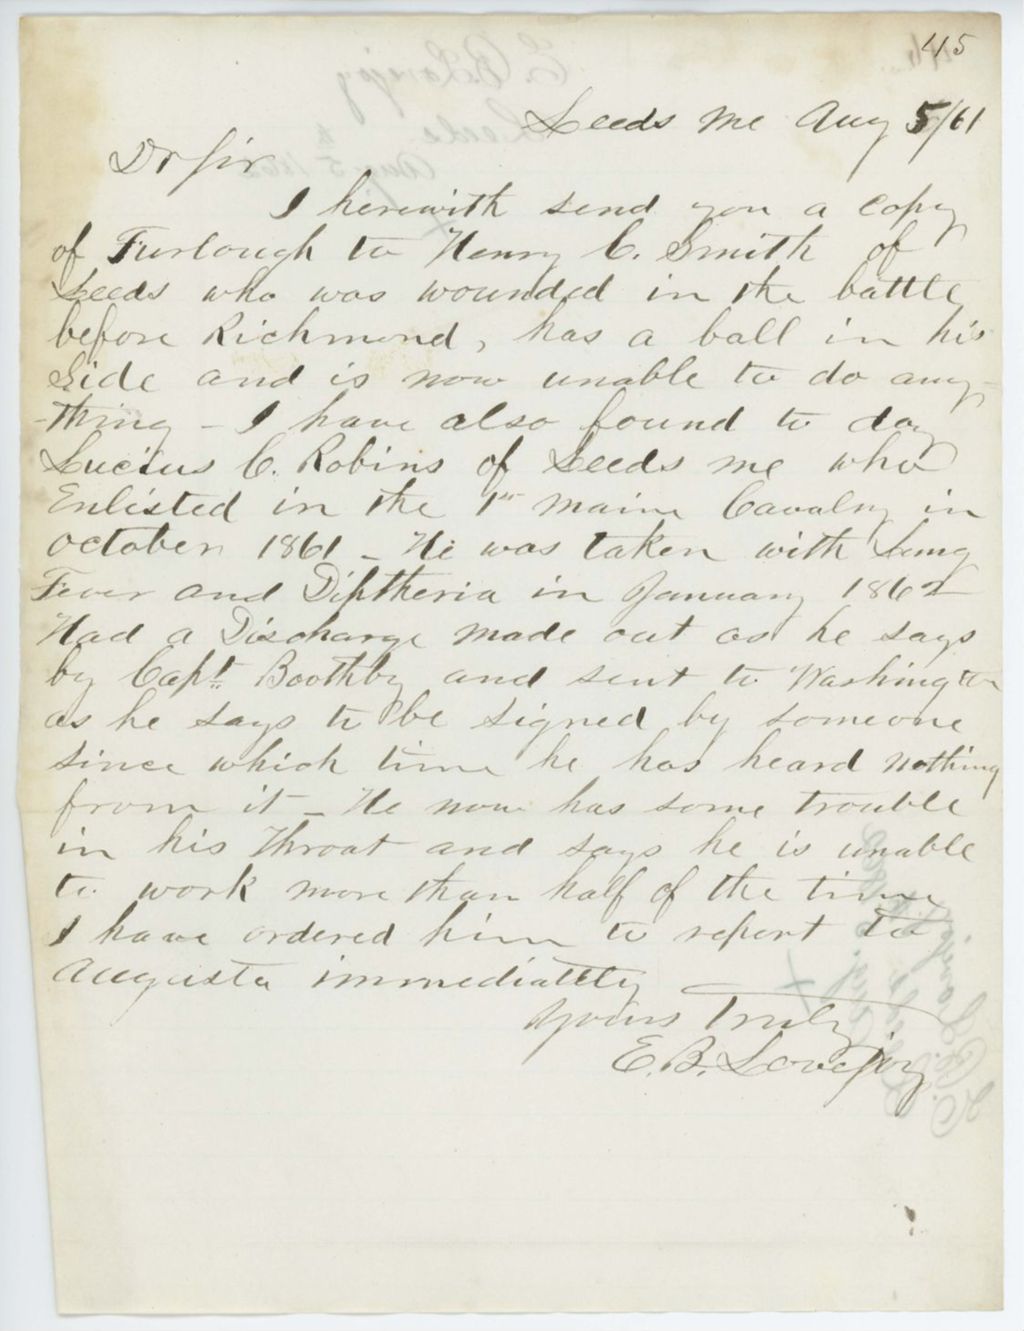 45
Leeds Me Aug 5/61
Dr Sir
I herewith send you a copy
of Furlough to Henry C. Smith of
Leeds who was wounded in the battle
before Richmond, has a ball in his
Side and is now unable to do any-
-thing - I have also found to day
Lucius C. Robins of Leeds me who
Enlisted in the 1st Maine Cavalry in
October 1861 - He was taken with Lung
Fever and Diptheria in January 1862
Had a Discharge made out as he says
by Capt. Boothby and sent to Washington
as he says to be signed by someone
since which time he has heard nothing
from it - He now has some trouble
in his Throat and says he is unable
to work more than half of the time
I have ordered him to report to
Augusta immediattly
Yours Truly
E. B. Lovejoy